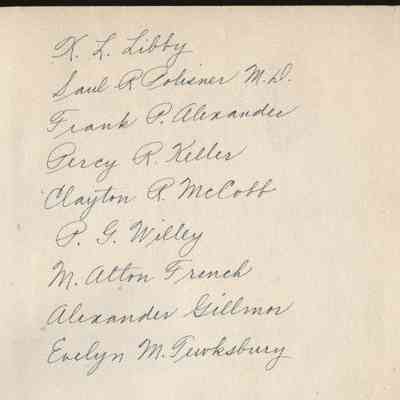 K. L. Libby
Saul R. Polisner M.D.
Frank P. Alexander
Percy R. Keller
Clayton R. McCobb
P. G. Willey
M. Alton French
Alexander Gillmor
Evelyn M. Tewksbury